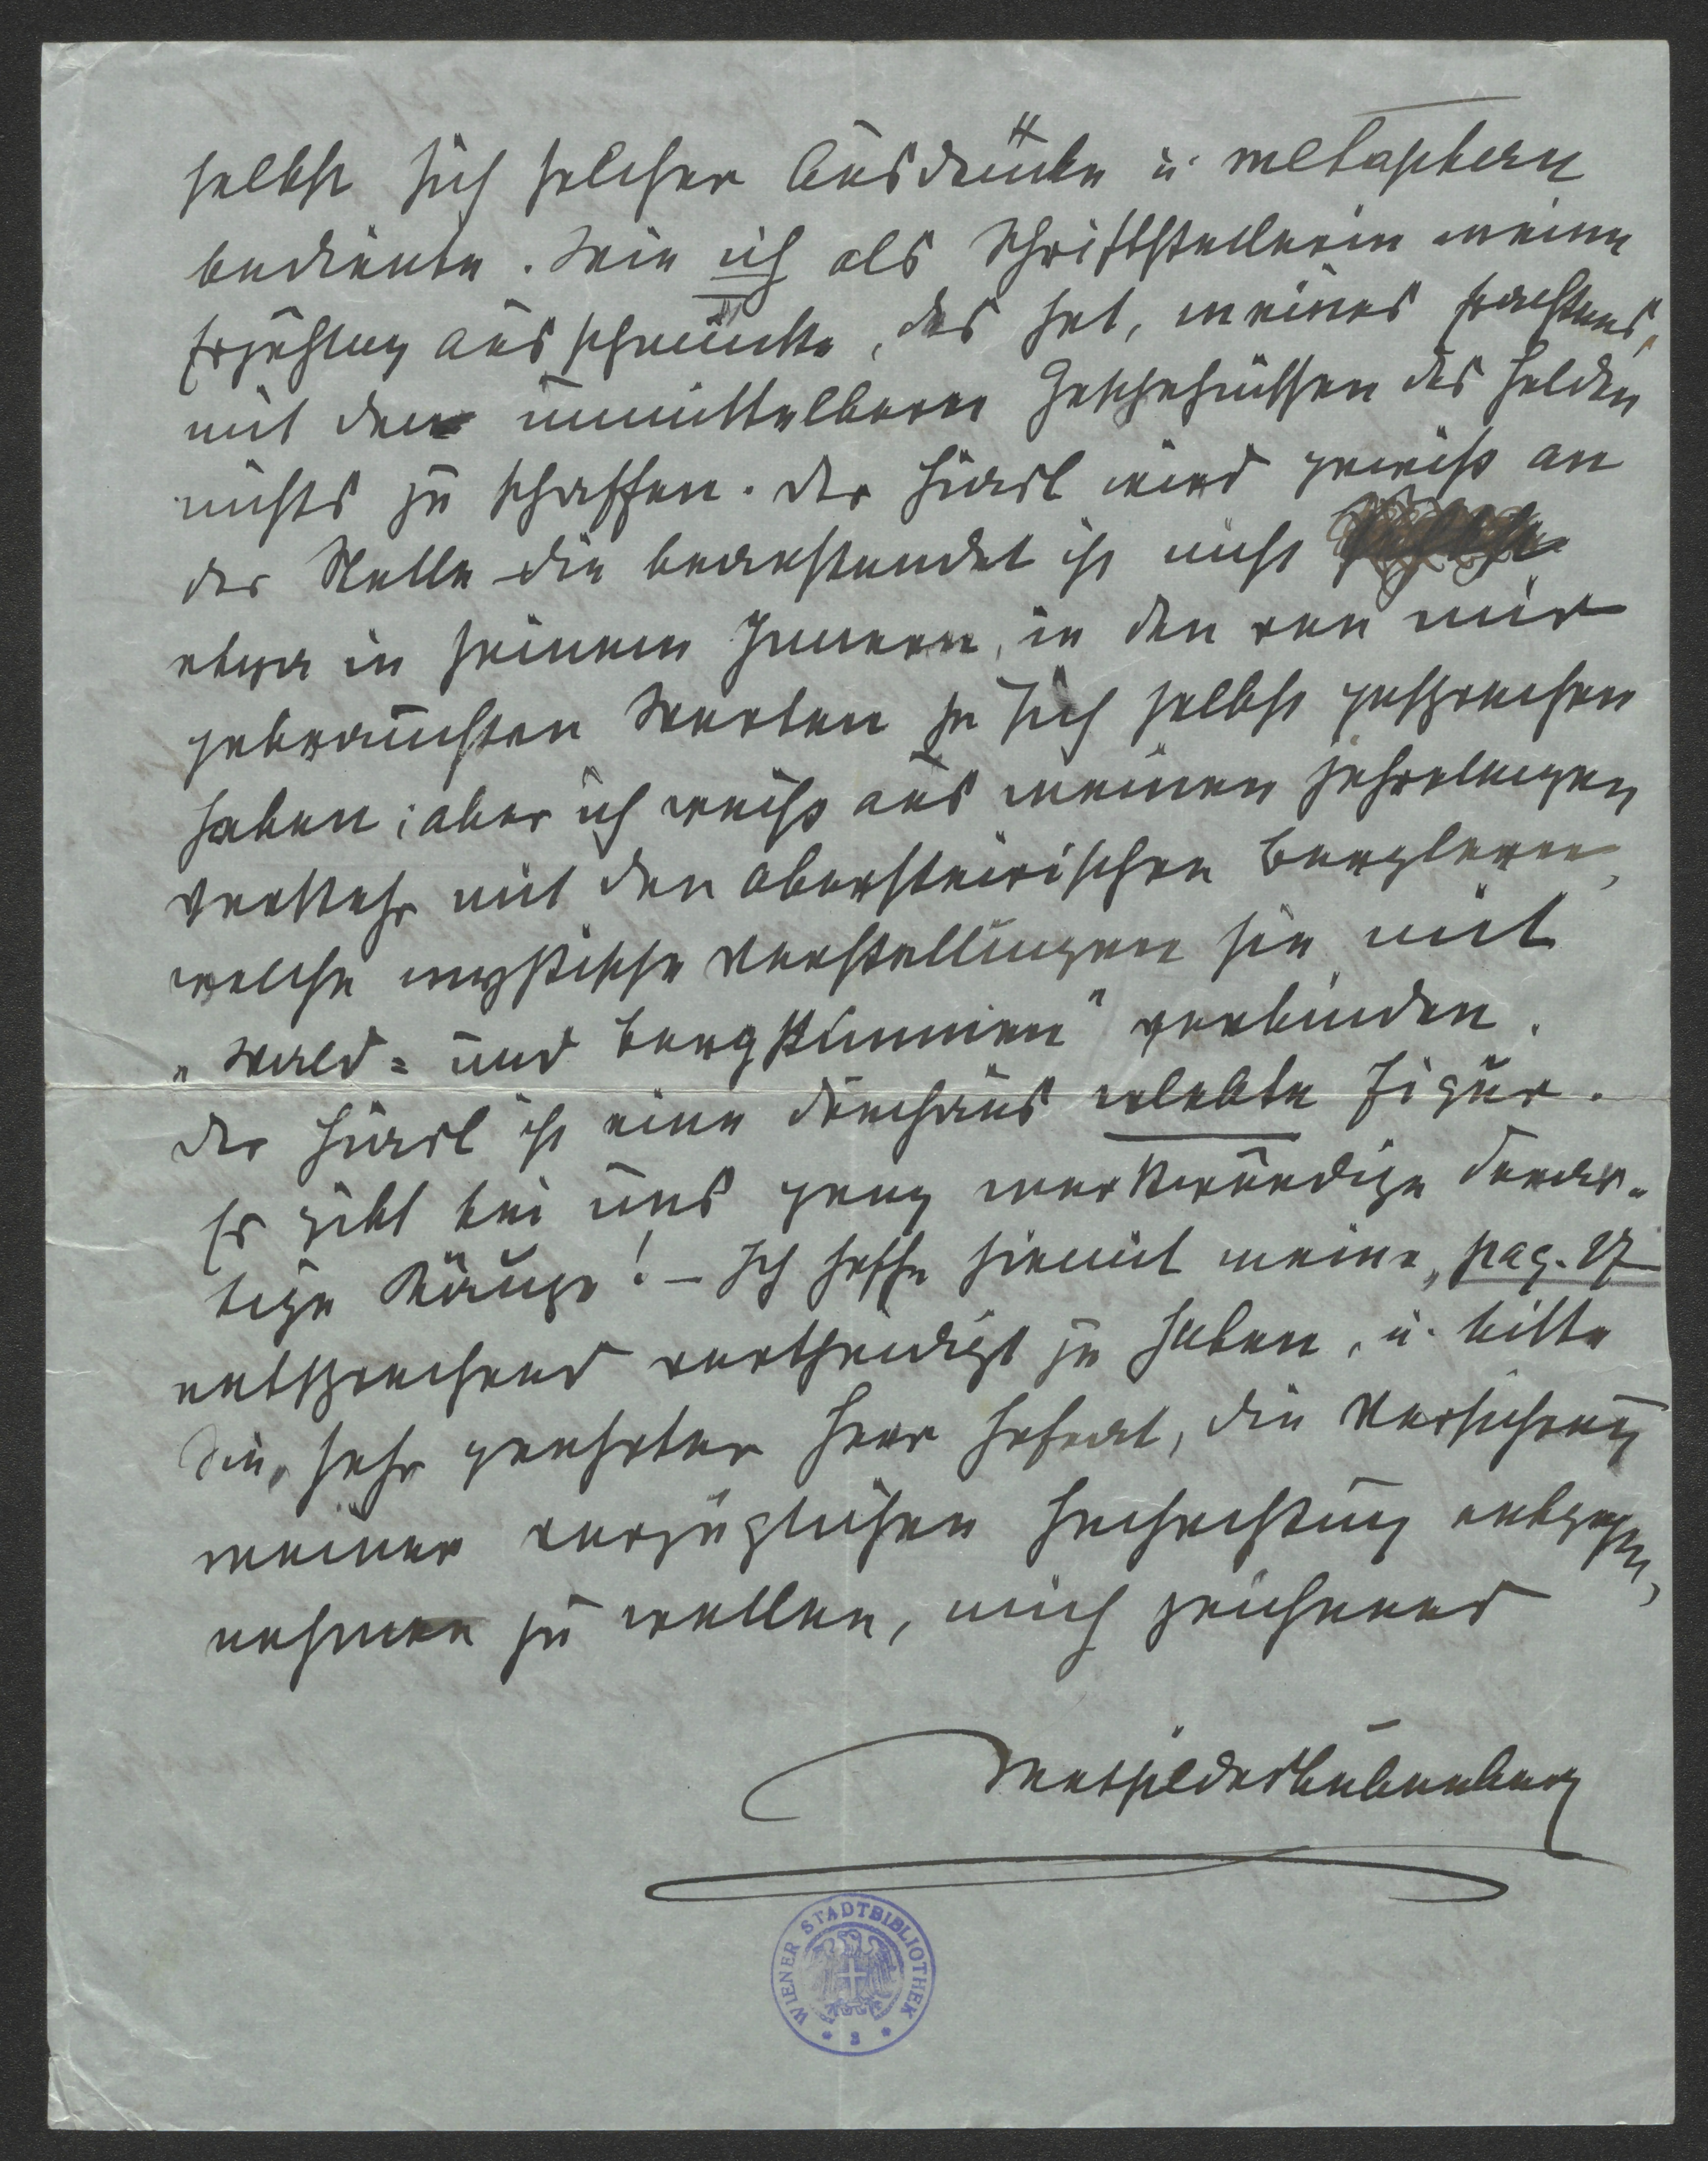 selbst sich solcher Ausdrücke u. metaphern
bediente. Wie ich als Schriftstellerin meine
Erzählung ausschmücke, das hat, meines Erachtens,
mit den unmittelbaren Geschehnissen des Helden
nichts zu schaffen. Der Hiasl wird gewiss an
der Stelle die beanstandet ist nicht
etwa in seinem Innern, in den von mir
gebrauchten Worten zu sich selbst gesprochen
haben; aber ich weiß aus meinem jahrelangen
Verkehr mit den obersteirischen Berglern,
welche mystische Vorstellungen sie mit
„Wald= und Bergstimmen" verbinden.
Der Hiasl ist eine durchaus erlebte Figur.
Es gibt bei uns ganz merkwürdige derar-
tige Käuze! – Ich hoffe hiemit meine „pag. 17
entsprechend vertheidigt zu haben, u. bitte
Sie, sehr geehrter Herr Hofrat, die Versicherung
meiner vorzüglichen Hochachtung entgegen,
nehmen zu wollen, mich zeichnend
Mathilde Stubenberg
WIENER STADTBIBLIOTHEK
* 3 *